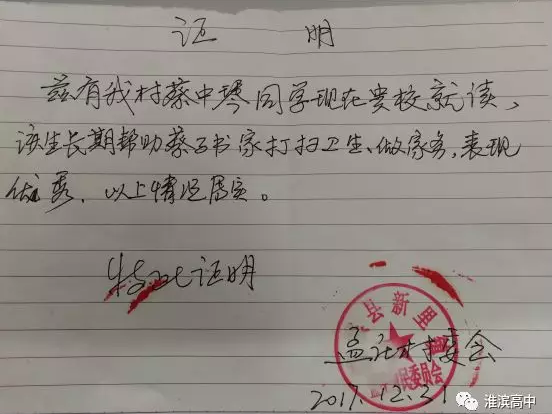 证 明
兹有我村蔡中琴同学现在贵校就读,
该生长期帮助蔡子书家打扫卫生、做家务,表现
优秀,以上情况属实。
特此证明
县新里
孟社村委会
民委员会
2017.12.21
淮滨高中